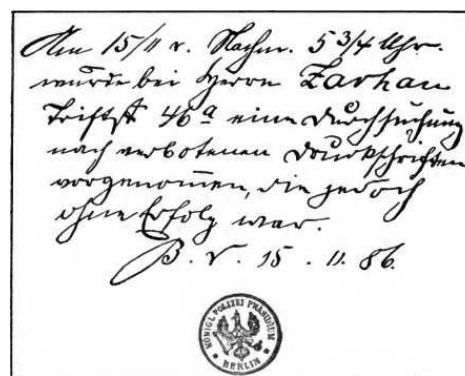 Am 15/11 r. Nachm. 5 3/4 Uhr.
wurde bei Herrn Zarhau
Triftst 46a eine Durchsuchung
nach verbotenen Druckschriften
vorgenommen, die jedoch
ohne Erfolg war.
B. d. 15. 11. 86.
KÖNIGL. POLIZEI PRÄSIDIUM
BERLIN